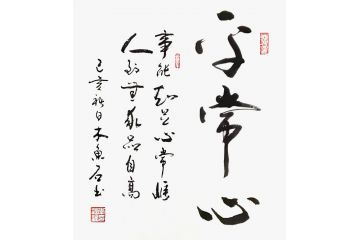 平常心
事能知足心常惬
人到无求品自高
己亥秋日木鱼石书